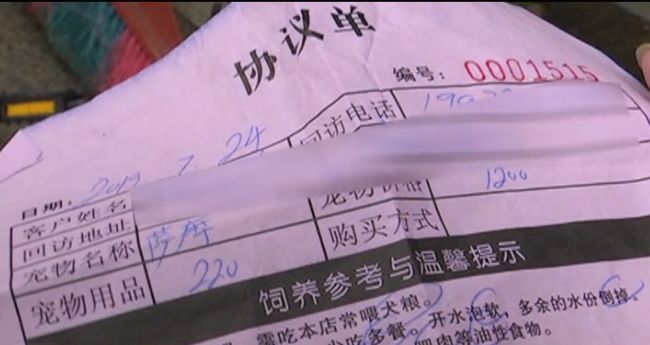 协议单
编号：0001515
日期：2019.7.24
客户姓名 回访电话 190
回访地址
宠物名称 萨摩 宠物价格 1200
宠物用品 220 购买方式
饲养参考与温馨提示
需吃本店常喂犬粮。
少吃多餐。开水泡软，多余的水份倒掉。
肥肉等油性食物。